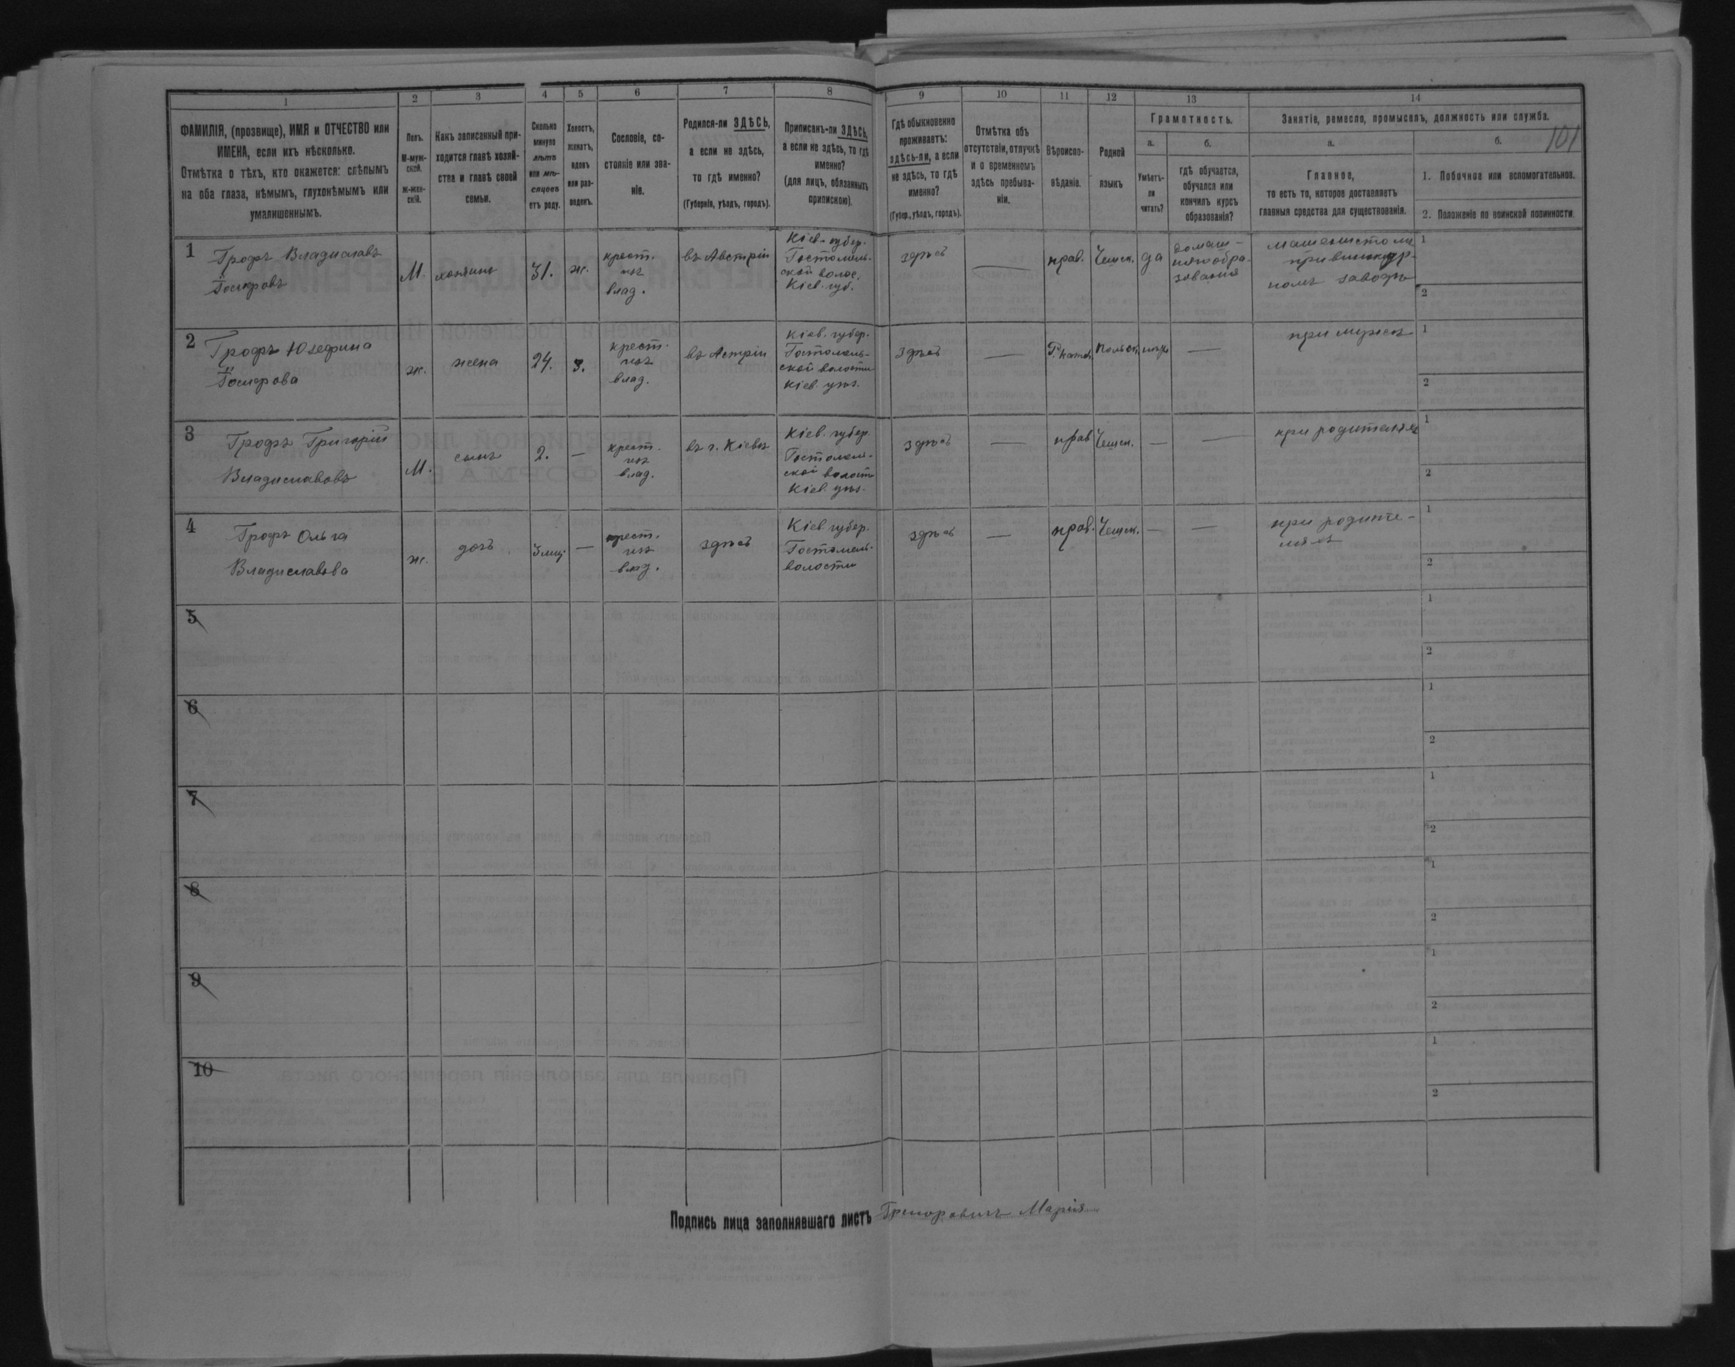 1 2 3 4 5 6 7 8 9 10 11 12 13 14
101
ФАМИЛІЯ, (прозвище), ИМЯ и ОТЧЕСТВО или
ИМЕНА, если ихъ нѣсколько.
Отмѣтка о тѣхъ, кто окажется: слѣпымъ
на оба глаза, нѣмымъ, глухонѣмымъ или
умалишеннымъ.
Полъ.
М-муж-
ской.
Ж-жен-
скій.
Какъ записанный при-
ходится главѣ хозяй-
ства и главѣ своей
семьи.
Сколько
минуло
лѣтъ
или мѣ-
сяцевъ
отъ роду.
Холостъ,
женатъ,
вдовъ
или раз-
веденъ.
Сословіе, со-
стояніе или зва-
ніе.
Родился-ли ЗДѢСЬ,
а если не здѣсь,
то гдѣ именно?
(Губернія, уѣздъ, городъ).
Приписанъ-ли ЗДѢСЬ,
а если не здѣсь, то гдѣ
именно?
(для лицъ, обязанныхъ
припискою).
Гдѣ обыкновенно
проживаетъ:
здѣсь-ли, а если
не здѣсь, то гдѣ
именно?
(Губер., уѣздъ, городъ).
Отмѣтка объ
отсутствіи, отлучкѣ
и о временномъ
здѣсь пребыва-
ніи.
Вѣроиспо-
вѣданіе.
Родной
языкъ
Грамотность.
а.
Умѣетъ-
ли
читать?
б.
гдѣ обучается,
обучался или
кончилъ курсъ
образованія?
Занятіе, ремесло, промыселъ, должность или служба.
а.
Главное,
то есть то, которое доставляетъ
главныя средства для существованія.
б.
1. Побочное или вспомогательное.
2. Положеніе по воинской повинности.
1
Грофъ Владиславъ
М.
хозяинъ
31.
ж.
крест.
изъ
влад.
въ Австріи
Кіев. губер.
Гостомель-
ской волос.
Кіев. губ.
здѣсь
—
прав.
Чешск.
да
домаш-
няго обра-
зования
машинистомъ
при
номъ заводѣ
1
2
2
Грофъ Юзефина
ж.
жена
24.
з.
крест.
изъ
влад.
въ Астріи
Кіев. губер.
Гостомель-
ской волости
Кіев. уѣз.
здѣсь
—
Польск.
—
при мужѣ
1
2
3
Грофъ Григорій
Владиславовъ
М.
сынъ
2.
—
крест.
изъ
влад.
въ г. Кіевѣ
Кіев. губер.
Гостомель-
ской волости
Кіев. уѣз.
здѣсь
—
прав.
Чешск.
—
—
при родителяхъ
1
2
4
Грофъ Ольга
Владиславова
ж.
дочь
3 мѣц.
—
крест.
изъ
влад.
здѣсь
Кіев губер.
Гостомель.
волости
здѣсь
—
прав.
Чешск.
—
—
при родите-
ляхъ
1
2
5
1
2
6
1
2
7
1
2
8
1
2
9
1
2
10
1
2
Подпись лица заполнявшаго листъ Григоровичъ Марія